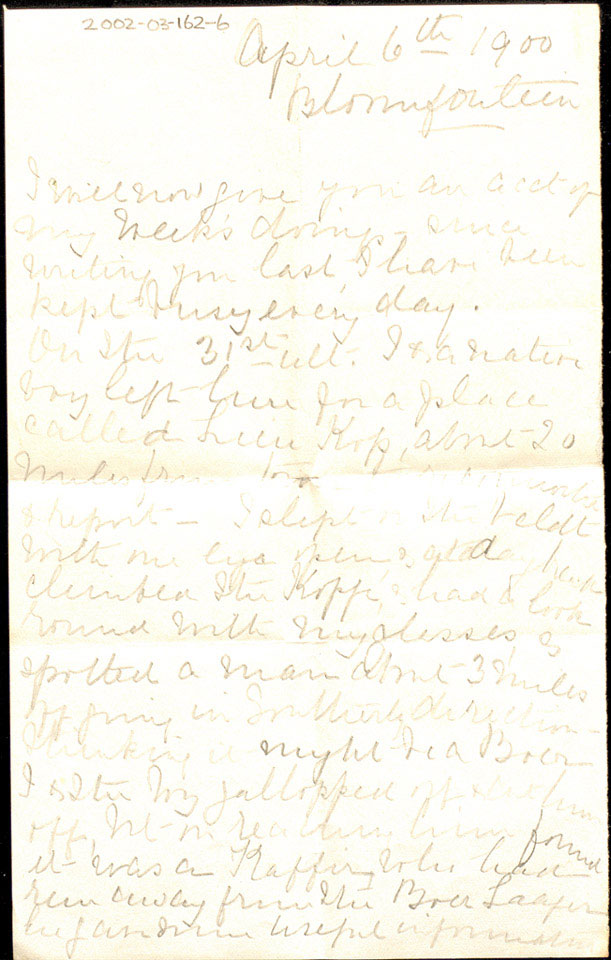 2002-03-162-6
April 6th 1900
Bloemfontein
I will now give you an acct of
my week's doings - since
writing you last I have been
kept busy every day.
On the 31st ult. I & a native
boy left here for a place
called Kop, about 20
miles from
& report - I slept on the veldt
with one eye open & at day break
climbed the Kopje, & had a look
round with my glasses, &
spotted a man about 3 miles
off going in Southerly direction -
thinking it might be a Boer
I & the boy gallopped off & cut him
off, but on reaching him found
it was a Kaffir, who had
run away from the Boer Laager
he gave me some useful information